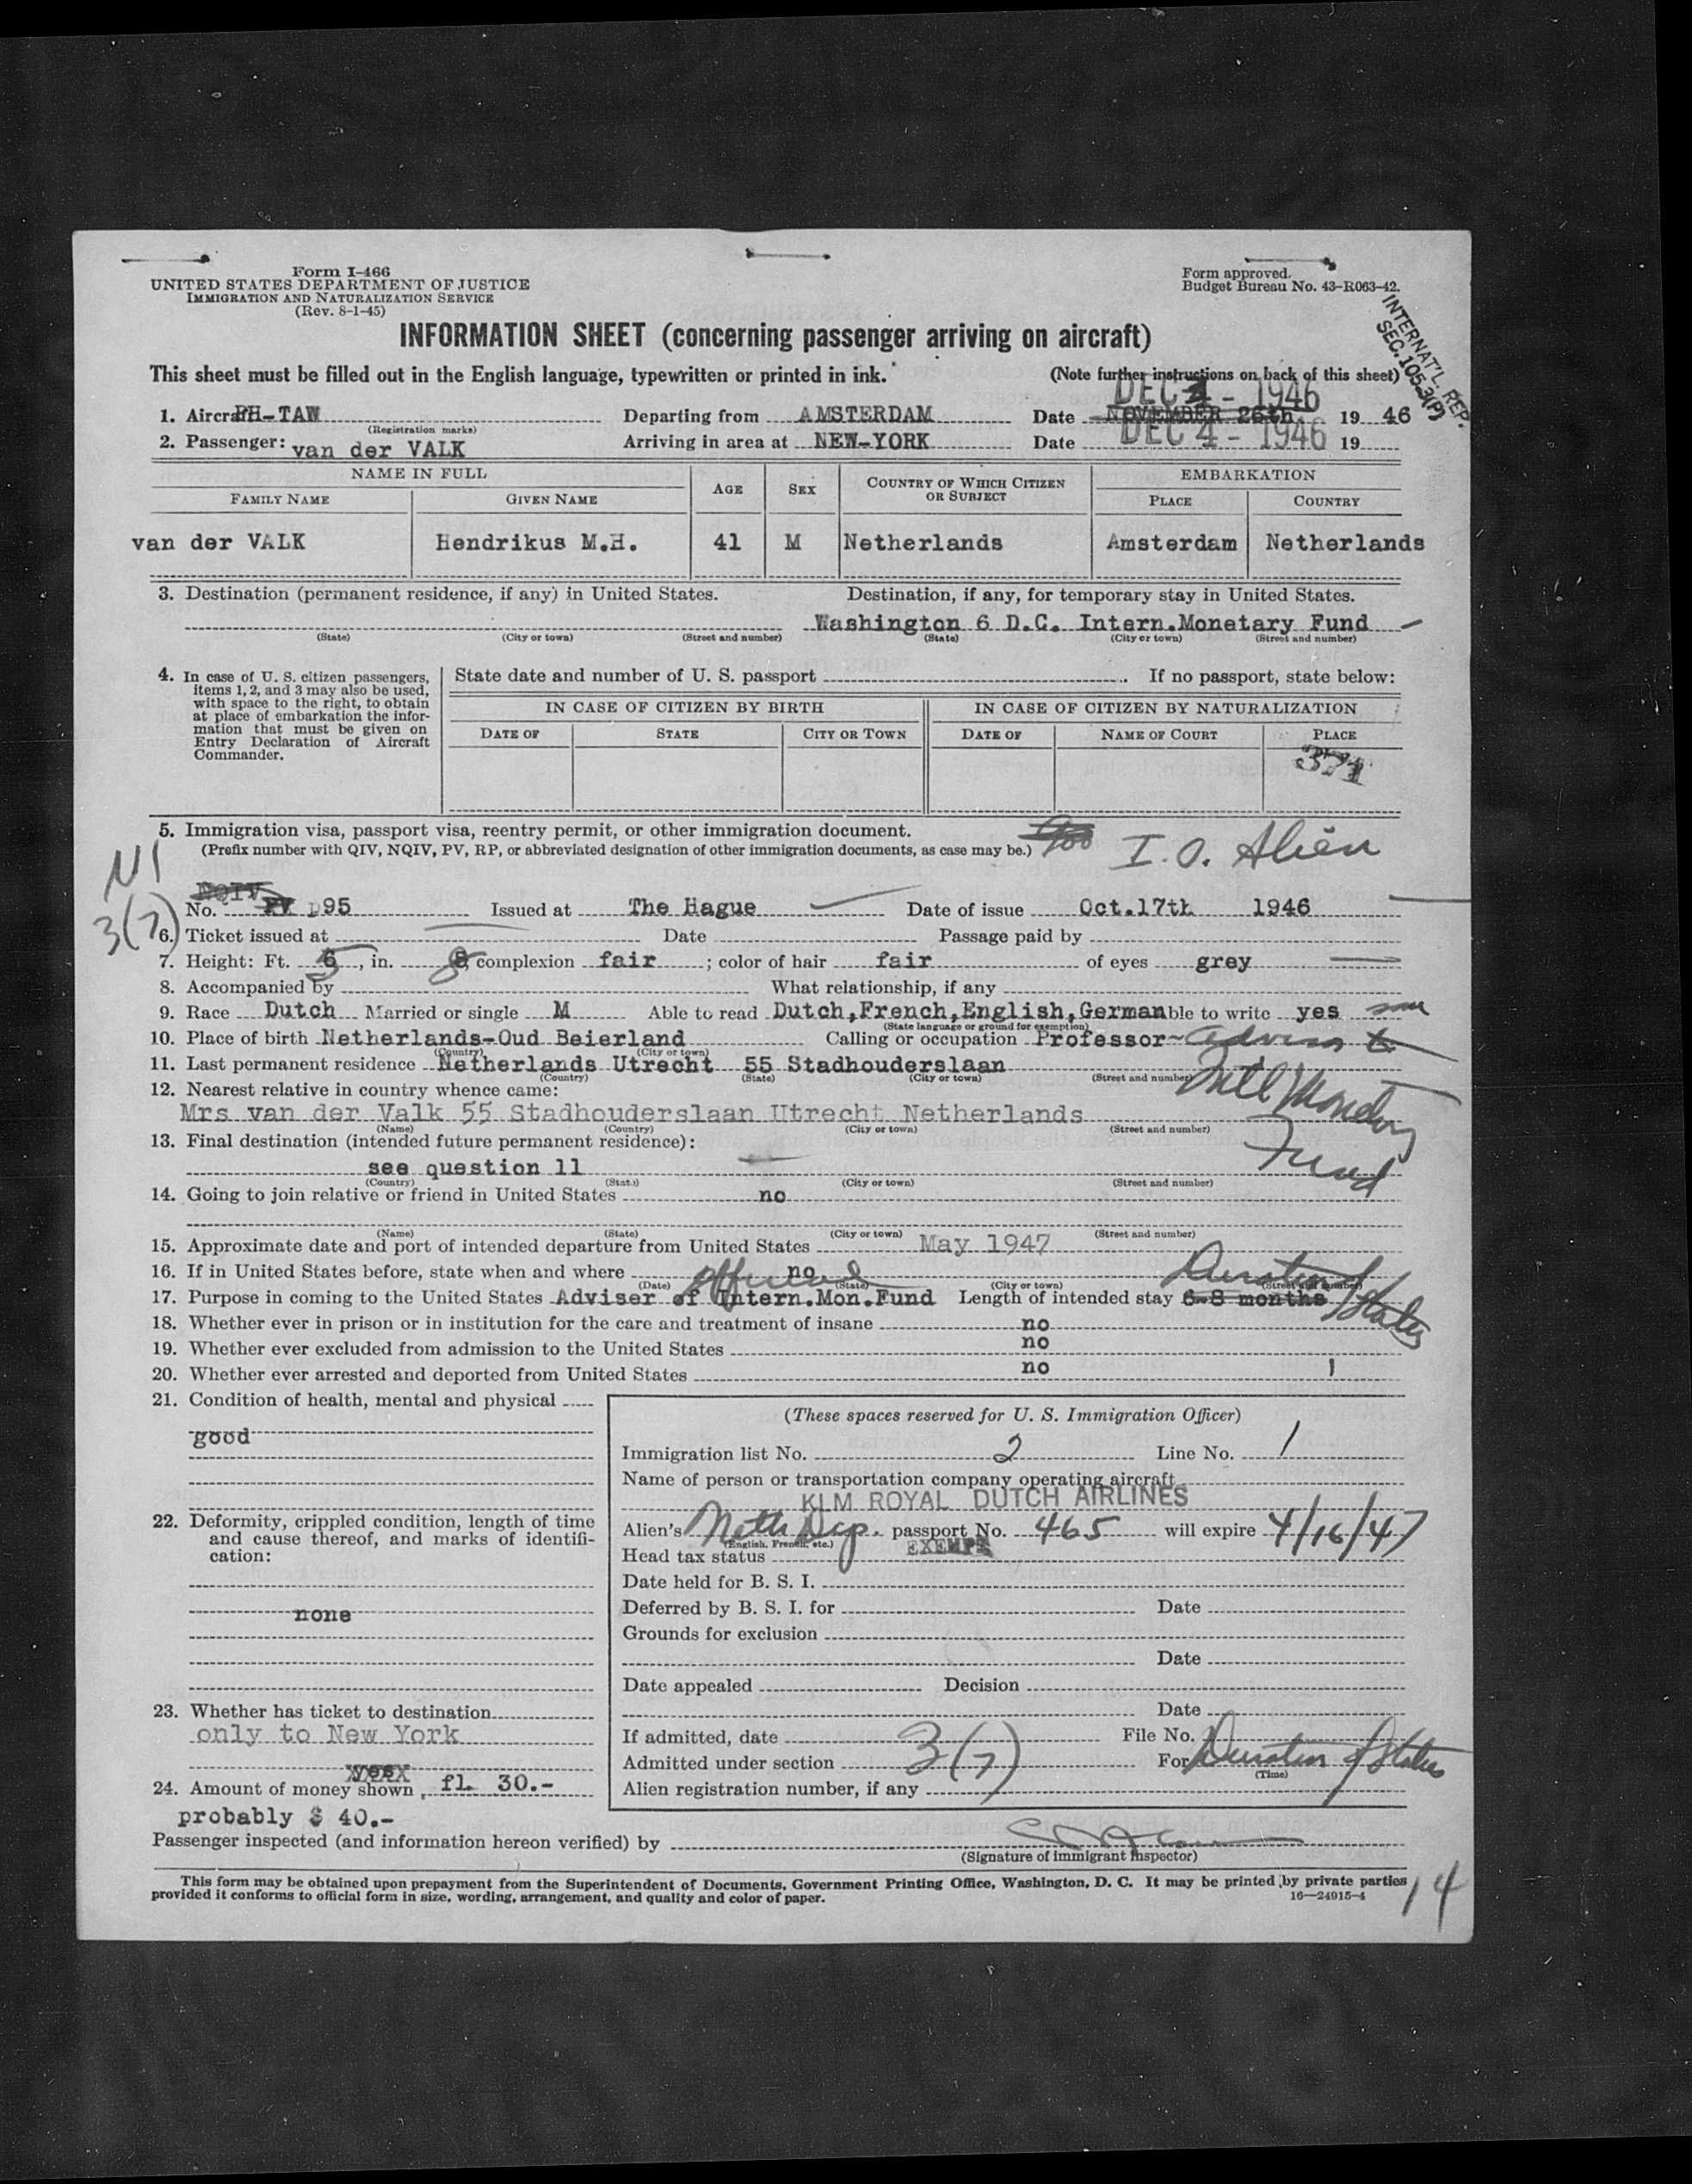 Form I-466
UNITED STATES DEPARTMENT OF JUSTICE
IMMIGRATION AND NATURALIZATION SERVICE
(Rev. 8-1-45)
Form approved.
Budget Bureau No. 43-R063-42.
INTERNAT'L. REP.
SEC. 105.3(P)
INFORMATION SHEET (concerning passenger arriving on aircraft)
This sheet must be filled out in the English language, typewritten or printed in ink.
(Note further instructions on back of this sheet)
1. Aircraft PH-TAW Departing from AMSTERDAM Date NOVEMBER 26th 19 46
DEC 4 - 1946
(Registration marks)
2. Passenger: van der VALK Arriving in area at NEW-YORK Date DEC 4 - 1946 19
NAME IN FULL AGE SEX COUNTRY OF WHICH CITIZEN OR SUBJECT EMBARKATION
FAMILY NAME GIVEN NAME PLACE COUNTRY
van der VALK Hendrikus M.H. 41 M Netherlands Amsterdam Netherlands
3. Destination (permanent residence, if any) in United States. Destination, if any, for temporary stay in United States.
Washington 6 D.C. Intern.Monetary Fund
(State) (City or town) (Street and number) (State) (City or town) (Street and number)
4. In case of U. S. citizen passengers, items 1, 2, and 3 may also be used, with space to the right, to obtain at place of embarkation the information that must be given on Entry Declaration of Aircraft Commander.
State date and number of U. S. passport If no passport, state below:
IN CASE OF CITIZEN BY BIRTH IN CASE OF CITIZEN BY NATURALIZATION
DATE OF STATE CITY OR TOWN DATE OF NAME OF COURT PLACE
371
5. Immigration visa, passport visa, reentry permit, or other immigration document.
(Prefix number with QIV, NQIV, PV, RP, or abbreviated designation of other immigration documents, as case may be.) I.O. Alien
NI
3(7)
NQIV
No. PV D95 Issued at The Hague Date of issue Oct.17th 1946
6. Ticket issued at Date Passage paid by
7. Height: Ft. 5, in. 8 complexion fair; color of hair fair of eyes grey
8. Accompanied by What relationship, if any
9. Race Dutch Married or single M Able to read Dutch,French,English,German able to write yes
(State language or ground for exemption)
10. Place of birth Netherlands-Oud Beierland Calling or occupation Professor-Advisor to
(Country) (City or town)
11. Last permanent residence Netherlands Utrecht 55 Stadhouderslaan
Intl Monetary
Fund
(Country) (State) (City or town) (Street and number)
12. Nearest relative in country whence came:
Mrs van der Valk 55 Stadhouderslaan Utrecht Netherlands
(Name) (Country) (City or town) (Street and number)
13. Final destination (intended future permanent residence):
see question 11
(Country) (State) (City or town) (Street and number)
14. Going to join relative or friend in United States no
(Name) (State) (City or town) (Street and number)
15. Approximate date and port of intended departure from United States May 1947
16. If in United States before, state when and where no
(Date) (State) (City or town) (Street and number)
official
Duration of Status
17. Purpose in coming to the United States Adviser of Intern.Mon.Fund Length of intended stay 6-8 months
18. Whether ever in prison or in institution for the care and treatment of insane no
19. Whether ever excluded from admission to the United States no
20. Whether ever arrested and deported from United States no
21. Condition of health, mental and physical
good
22. Deformity, crippled condition, length of time and cause thereof, and marks of identification:
none
23. Whether has ticket to destination
only to New York
yes
24. Amount of money shown, fl. 30.-
probably $ 40.-
(These spaces reserved for U. S. Immigration Officer)
Immigration list No. 2 Line No. 1
Name of person or transportation company operating aircraft
KLM ROYAL DUTCH AIRLINES
Alien's Neth Dip. passport No. 465 will expire 4/16/47
(English, French, etc.)
Head tax status EXEMPT
Date held for B. S. I.
Deferred by B. S. I. for Date
Grounds for exclusion
Date
Date appealed Decision
Date
If admitted, date File No.
Admitted under section 3(7) For Duration of Status
(Time)
Alien registration number, if any
Passenger inspected (and information hereon verified) by
(Signature of Immigrant Inspector)
This form may be obtained upon prepayment from the Superintendent of Documents, Government Printing Office, Washington, D. C. It may be printed by private parties
provided it conforms to official form in size, wording, arrangement, and quality and color of paper.
16—24915-4
14